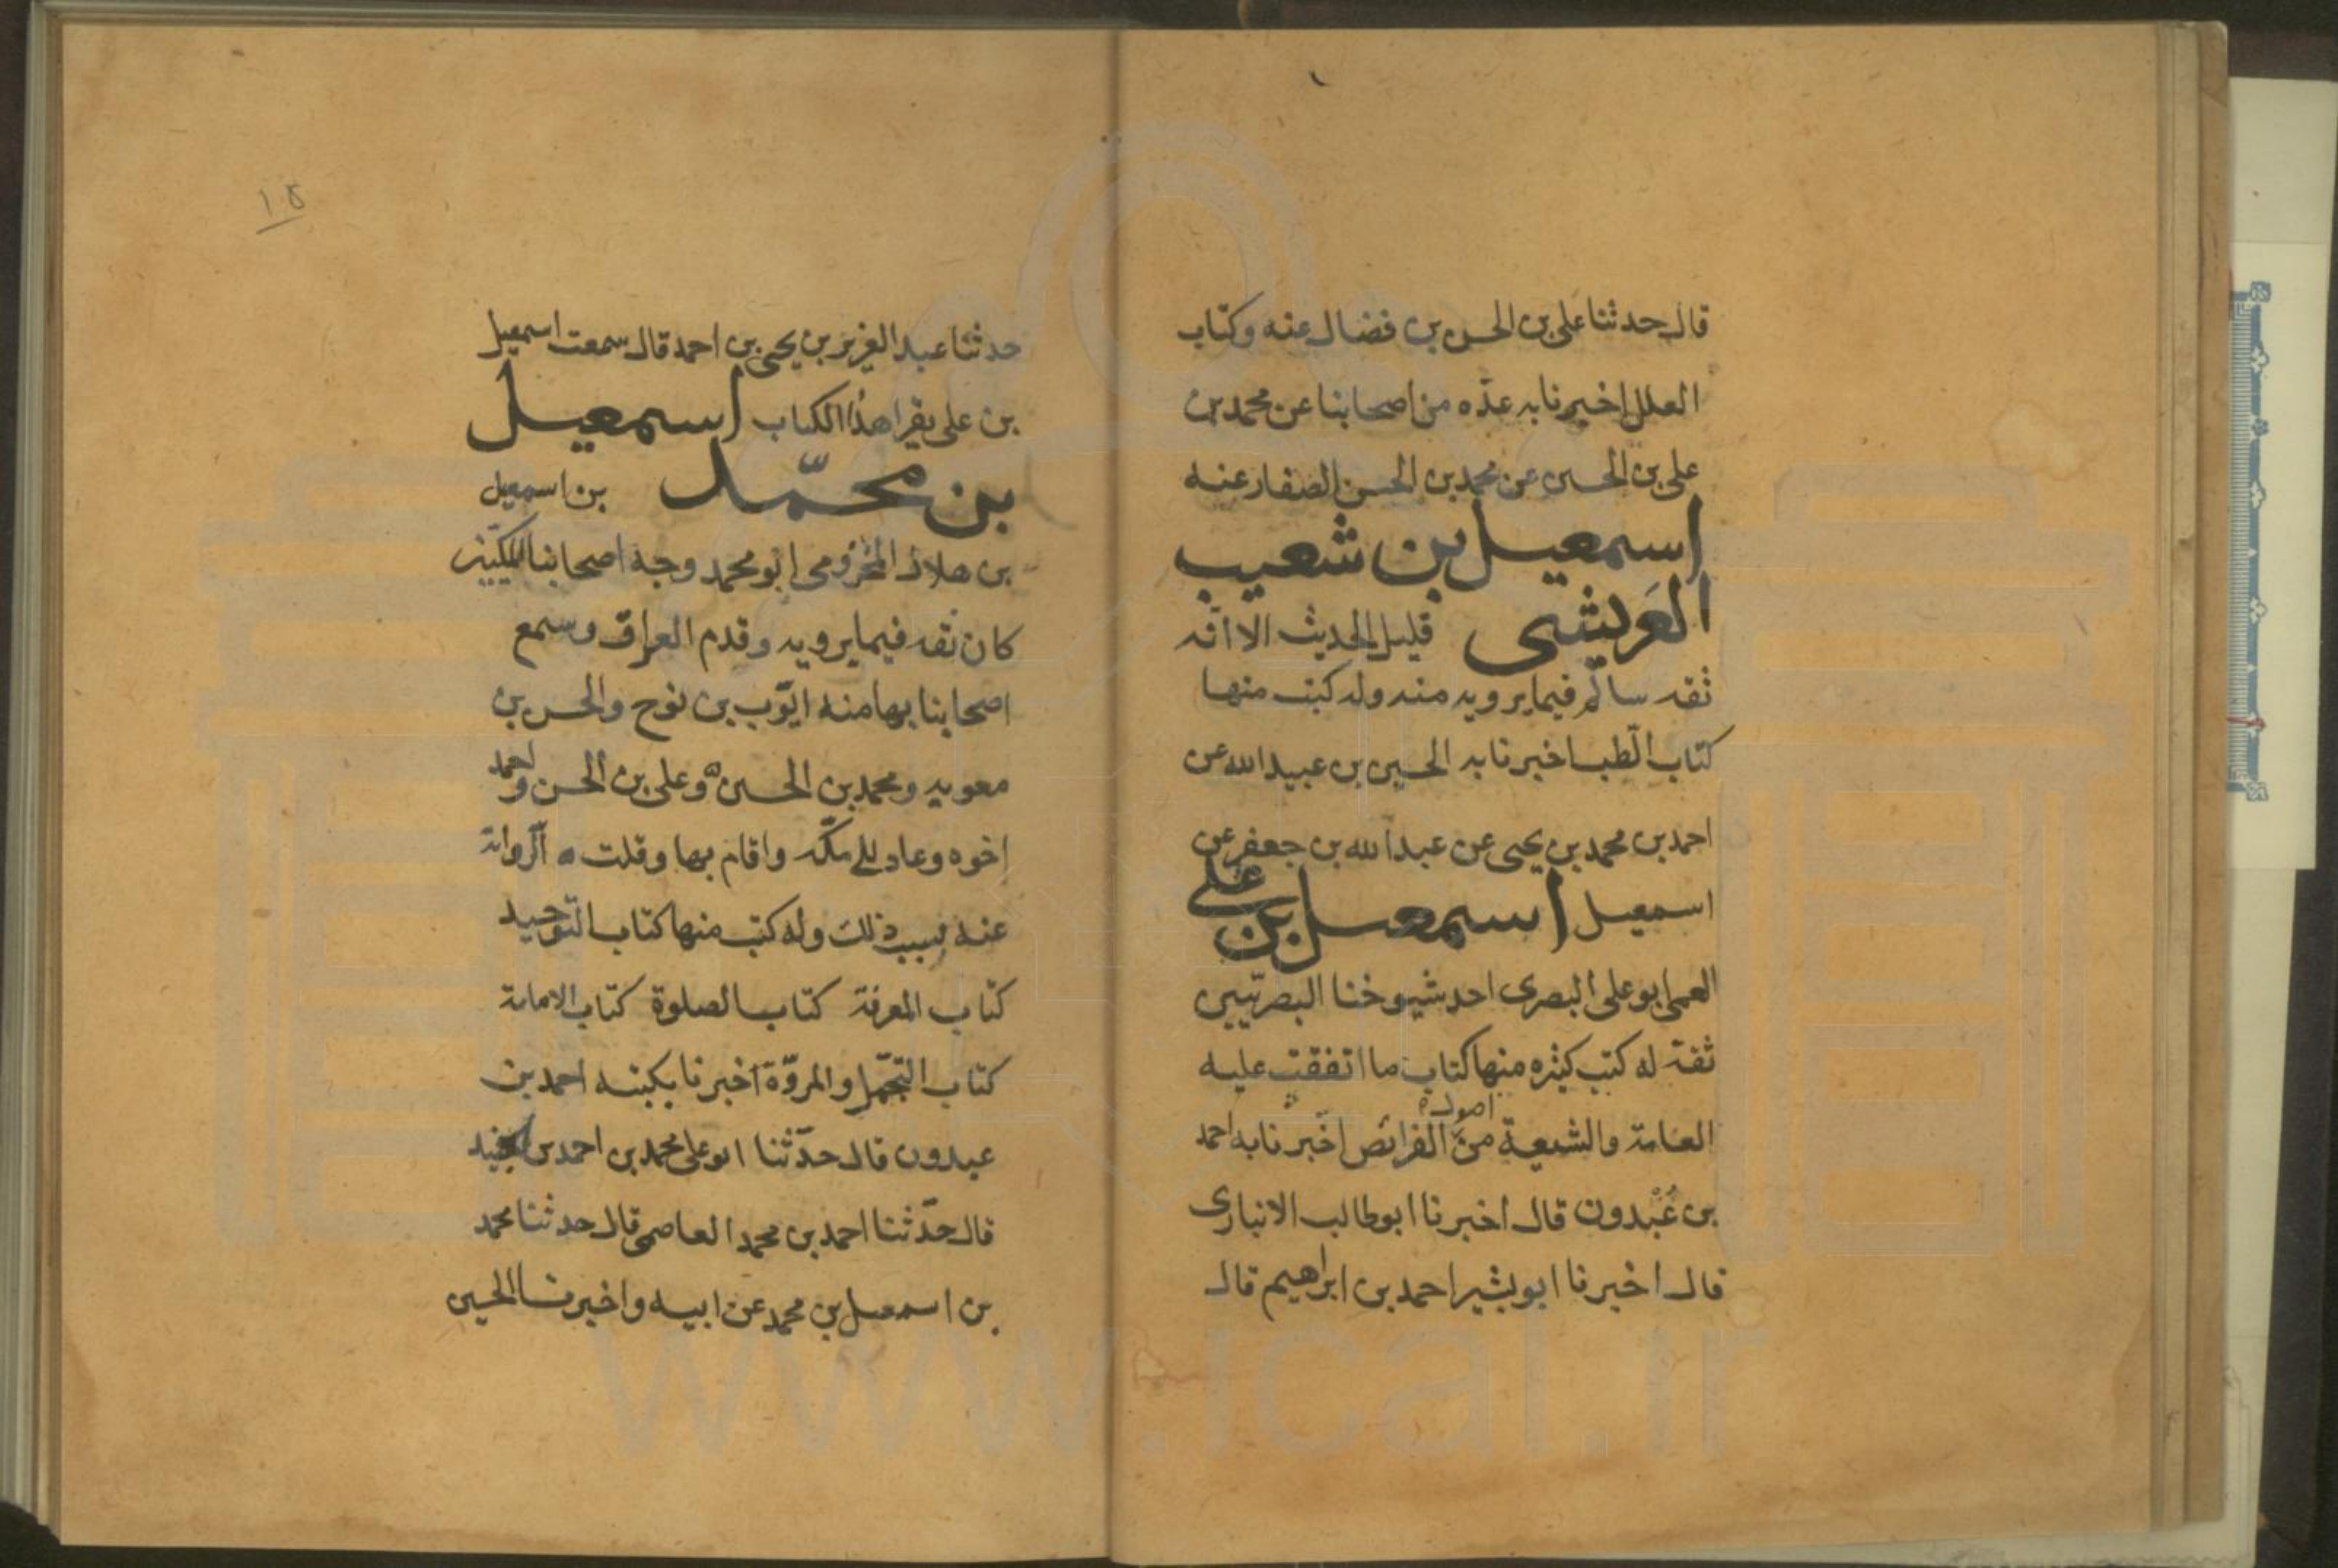 قال حدثنا على بن الحسن بن فضال عنه وكتاب
العلل اخبرنا به عدّه من اصحابنا عن محمد بن
على بن الحسين عن محمد بن الحسن الصفار عنه
اسمعيل بن شعيب
العَريشى قليل الحديث الا انّه
ثقه سالم فيما يرويه منه وله كتب منها
كتاب الطب اخبرنا به الحسين بن عبيد الله عن
احمد بن محمد بن يحيى عن عبد الله بن جعفر عن
اسمعيل اسمعيل بن على
العمى ابو على البصرى احد شيوخنا البصريّين
ثقة له كتب كثيره منها كتاب ما اتفقت عليه
العامة والشيعة من اصول الفرائض اخبرنا به احمد
بن عُبْدون قال اخبرنا ابو طالب الانبارى
قال اخبرنا ابو بشير احمد بن ابراهيم قال
١٥
حدثنا عبد العزيز بن يحيى بن احمد قال سمعت اسمعيل
بن على يقرا هذا الكتاب اسمعيل
بن محمّد بن اسمعيل
بن هلال المخزومى ابو محمد وجه اصحابنا المكيّين
كان ثقه فيما يرويه وقدم العراق وسمع
اصحابنا بها منه ايّوب بن نوح والحسن بن
معويه ومحمد بن الحسين وعلى بن الحسن واحمد
اخوه وعاد الى مكّه واقام بها وقلت الرواية
عنه بسبب ذلك وله كتب منها كتاب التوحيد
كتاب المعرفة كتاب الصلوة كتاب الامامة
كتاب التجمّل والمروّة اخبرنا بكتبه احمد بن
عبدون قال حدّثنا ابو على محمد بن احمد بن الجنيد
قال حدّثنا احمد بن محمد العاصمى قال حدثنا محمد
بن اسمعيل بن محمد عن ابيه واخبرنا الحسين
www.ical.ir